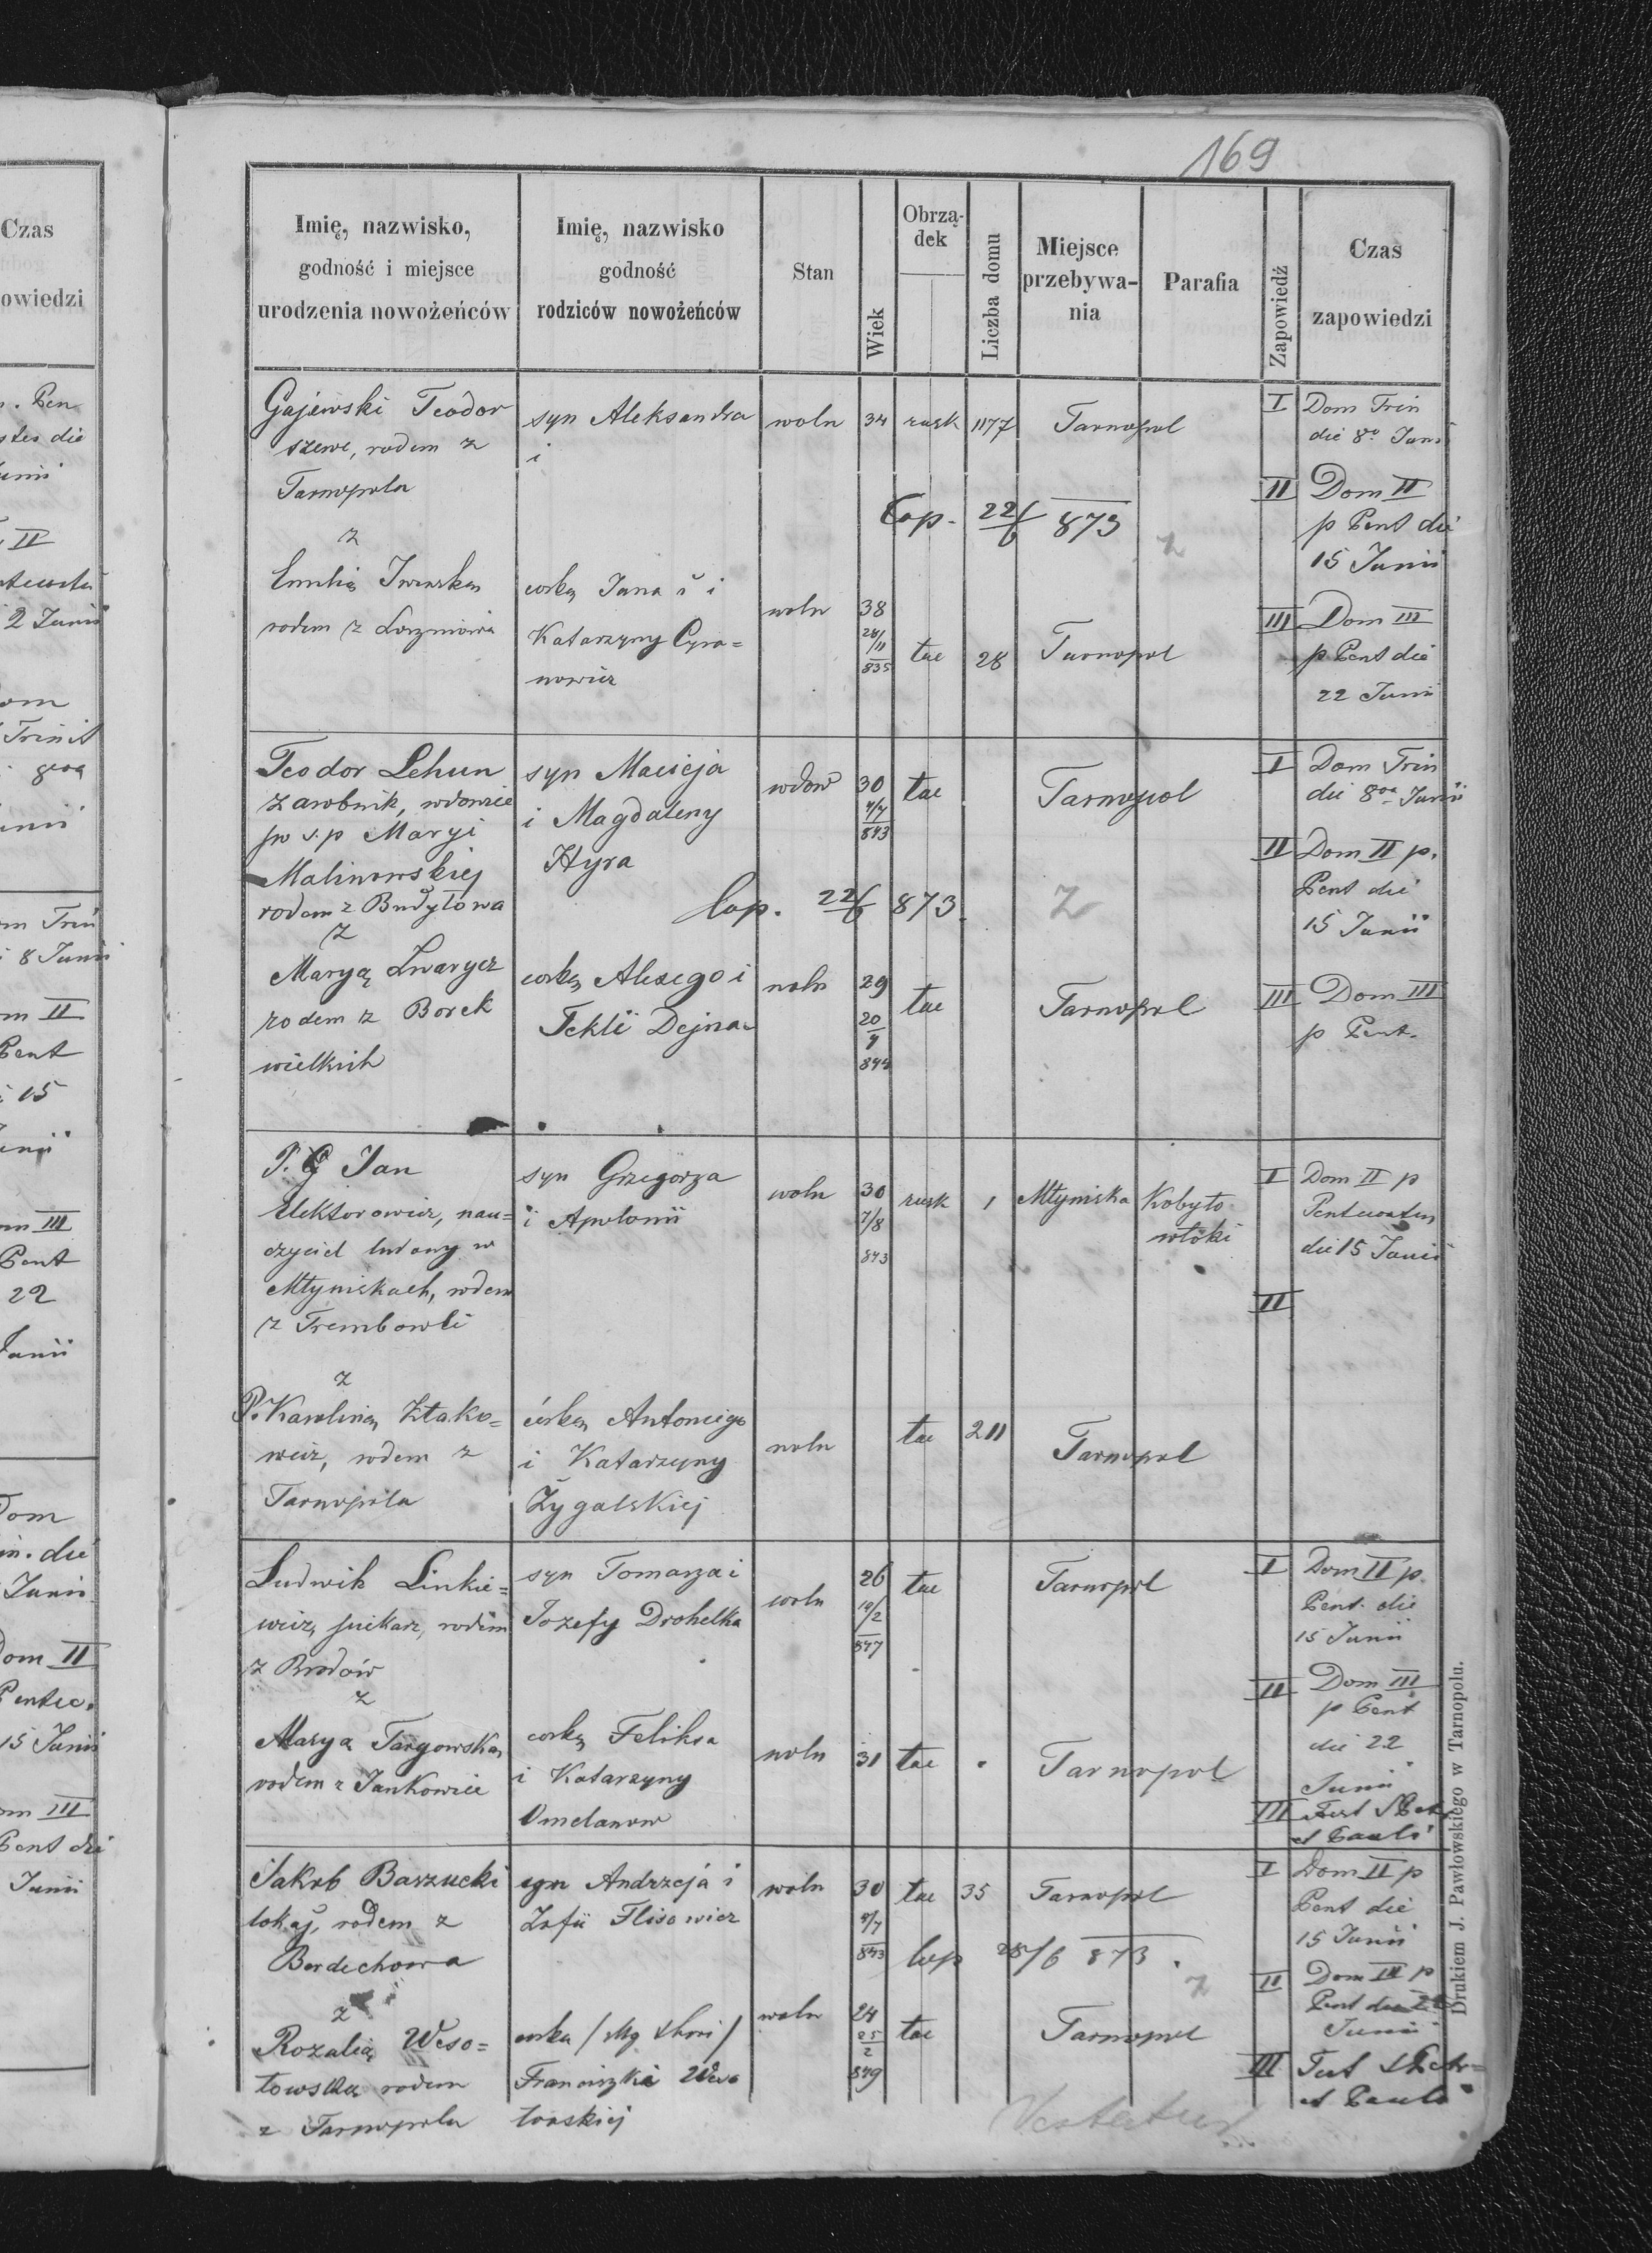 169
Imię, nazwisko,
godność i miejsce
urodzenia nowożeńców
Imię, nazwisko
godność
rodziców nowożeńców
Stan
Wiek
Obrzą-
dek
Liczba domu
Miejsce
przebywa-
nia
Parafia
Zapowiedź
Czas
zapowiedzi
Gajewski Teodor
szewc, rodem z
Tarnopola
z
Emilią
rodem z
syn Aleksandra
i
córką Jana i
Katarzyny Cyra=
nowicz
woln 34 rusk 1177 Tarnopol
Cop. 22/6 873
z
woln 38
24/11
835
łac 28 Tarnopol
I Dom Trin
die 8o Juni
II Dom II
p Pent die
15 Junii
III Dom III
p Pent die
22 Junii
Teodor Lehun
zarobnik, wdowiec
po s.p Maryi
Malinowskiej
rodem z Budyłowa
z
Maryą Zwarycz
rodem z Borek
wielkich
syn Macieja
i Magdaleny
Hyra
Cop. 22/6 873
z
córką Alexego i
Tekli Dejna
wdow 30
843
łac Tarnopol
woln 29
20
844
łac Tarnopol
I Dom Trin
die 8va Junii
II Dom II p.
Pent die
15 Junii
III Dom III
p Pent.
P. Jan
Elektorowicz, nau=
czyciel ludowy w
Młyniskach, rodem
z Trembowli
z
P. Karoliną Złako=
wicz, rodem z
Tarnopola
syn Grzegorza
i Apolonii
córką Antoniego
i Katarzyny
Zygalskiej
woln 30
7/8
843
rusk 1 Młyniska Kobyło
włoki
woln łac 211 Tarnopol
I Dom II p
die 15 Junii
II
Ludwik Linkie=
wicz, piekarz, rodem
z Brodów
z
Maryą Targowską
rodem z Jankowiec
syn Tomasza i
Jozefy Drohelka
córką Feliksa
i Katarzyny
Omelanow
woln 26
847
łac Tarnopol
woln 31 łac Tarnopol
I Dom II p.
Pent. die
15 Junii
II Dom III
p Pent
die 22
Junii
III Fest
et Pauli
Jakob Barzucki
lokaj, rodem z
Berdechowa
z
Rozalią Weso=
łowską rodem
z Tarnopola
syn Andrzeja i
Zofii Flisowicz
córka
Franciszki Weso
łowskiej
woln 30
843
łac 35 Tarnopol
Cop 28/6 873.
z
woln 24
25
2
849
łac Tarnopol
I Dom II p
Pent die
15 Junii
II Dom III p
Pent die 22
Junii
III Fest
et Pauli
Drukiem J. Pawłowskiego w Tarnopolu.
Czas
owiedzi